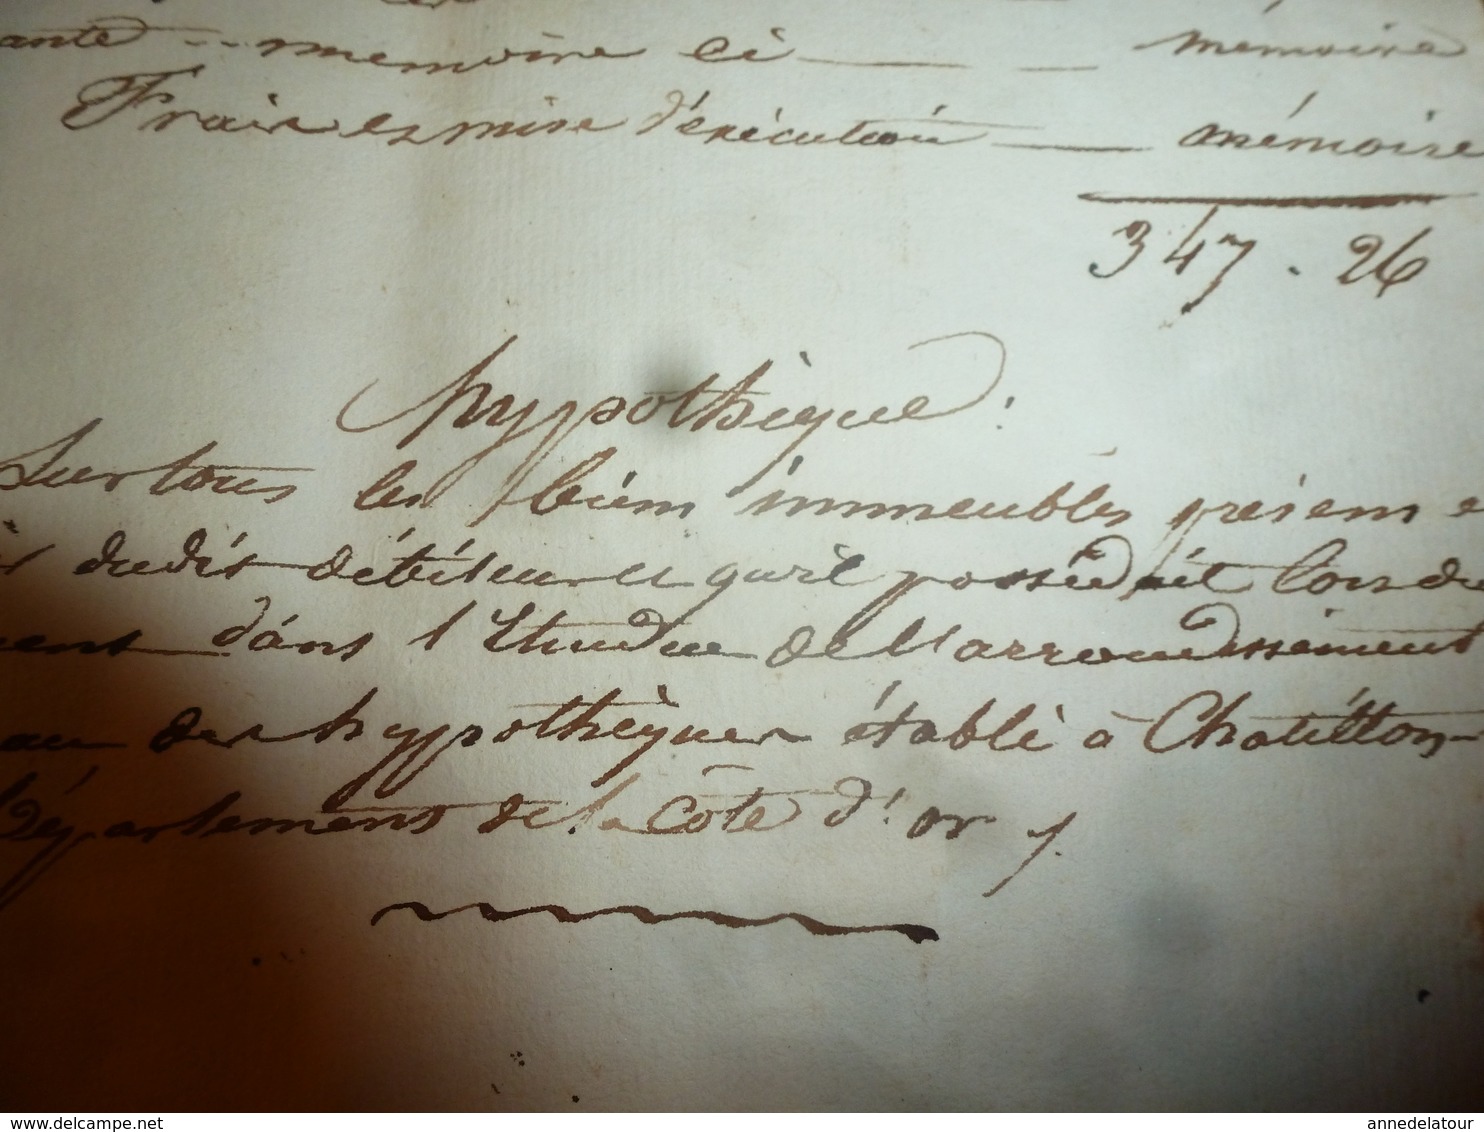 mémoire ci mémoire
Frais et mise d'exécution mémoire
347 . 26
hypothèque :
Sur tous les biens immeubles présens
dudit débiteur et qu'il possédait lors de
dans l'Etendue de l'arrondissement
des hypothèques établi à Chatillon
département de la Côte d'or
www.delcampe.net
annedelatour